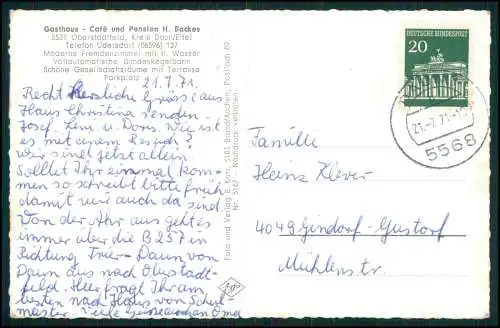 Gasthaus - Café und Pension H. Backes
5531 Oberstadtfeld, Kreis Daun/Eifel
Telefon Üdersdorf (06596) 127
Moderne Fremdenzimmer mit fl. Wasser
Vollautomatische Bundeskegelbahn
Schöne Gesellschaftsräume mit Terrasse
Parkplatz
21.7.71.
Recht herzliche Grüsse aus
Haus Christina senden
Josef, Leni u. Doris. Wie ist
es mit einem Besuch?
Wir sind jetzt allein.
Solltet Ihr einmal kom-
men so schreibt bitte früh
damit wir auch da sind.
Von der Ahr aus geht es
immer über die B 257 in
Richtung Trier - Daun von
Daun aus nach Oberstadt-
feld. Hier fragt Ihr am
besten nach Haus von Schul
master. Viele
Foto und Verlag E. Kann, 5183 Postfach 89
Nr. 5167 Nachdruck verboten
Agfa
DEUTSCHE BUNDESPOST
20
21.-7.71
5568
Familie
Heinz Klever
4049 Gindorf-Gustorf
Mühlenstr.